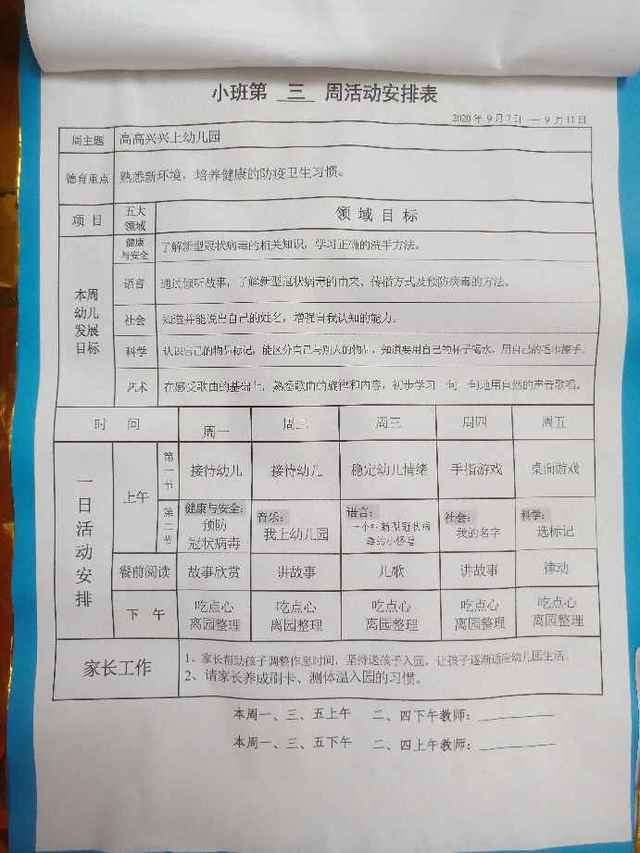 小班第 三 周活动安排表
2020年9月7日 — 9月11日
周主题 高高兴兴上幼儿园
德育重点 熟悉新环境，培养健康的防疫卫生习惯。
项目 五大领域 领域目标
本周幼儿发展目标
健康与安全 了解新型冠状病毒的相关知识，学习正确的洗手方法。
语言 通过倾听故事，了解新型冠状病毒的由来、传播方式及预防病毒的方法。
社会 知道并能说出自己的姓名，增强自我认知的能力。
科学 认识自己的物品标记，能区分自己与别人的物品，知道要用自己的杯子喝水，用自己的毛巾擦手。
艺术 在感受歌曲的基础上，熟悉歌曲的旋律和内容，初步学习一句一句地用自然的声音歌唱。
时间 周一 周二 周三 周四 周五
一日活动安排
上午
第一节 接待幼儿 接待幼儿 稳定幼儿情绪 手指游戏 桌面游戏
第二节 健康与安全：预防冠状病毒 音乐：我上幼儿园 语言：一个 新型冠状病毒的小怪兽 社会：我的名字 科学：选标记
餐前阅读 故事欣赏 讲故事 儿歌 讲故事 律动
下午 吃点心 吃点心 吃点心 吃点心 吃点心
离园整理 离园整理 离园整理 离园整理 离园整理
家长工作
1、家长帮助孩子调整作息时间，坚持送孩子入园，让孩子逐渐适应幼儿园生活。
2、请家长养成刷卡、测体温入园的习惯。
本周一、三、五上午 二、四下午教师：
本周一、三、五下午 二、四上午教师：